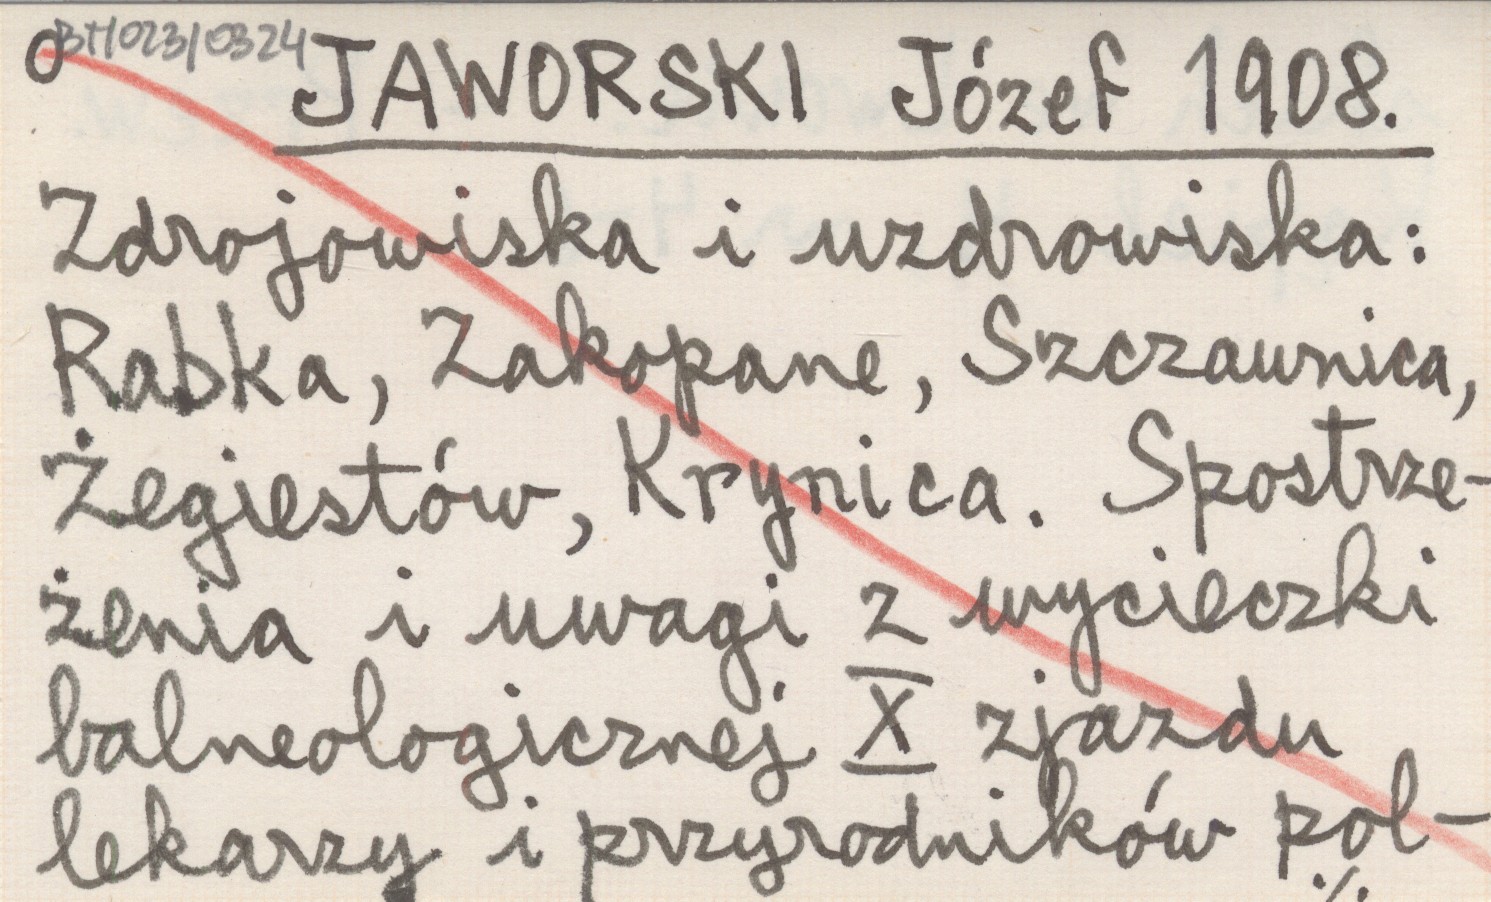 BT/023/0324
JAWORSKI Józef 1908.
Zdrojowiska i uzdrowiska:
Rabka, Zakopane, Szczawnica,
Żegiestów, Krynica. Spostrze-
żenia i uwagi z wycieczki
balneologicznej X zjazdu
lekarzy i przyrodników pol-
./.